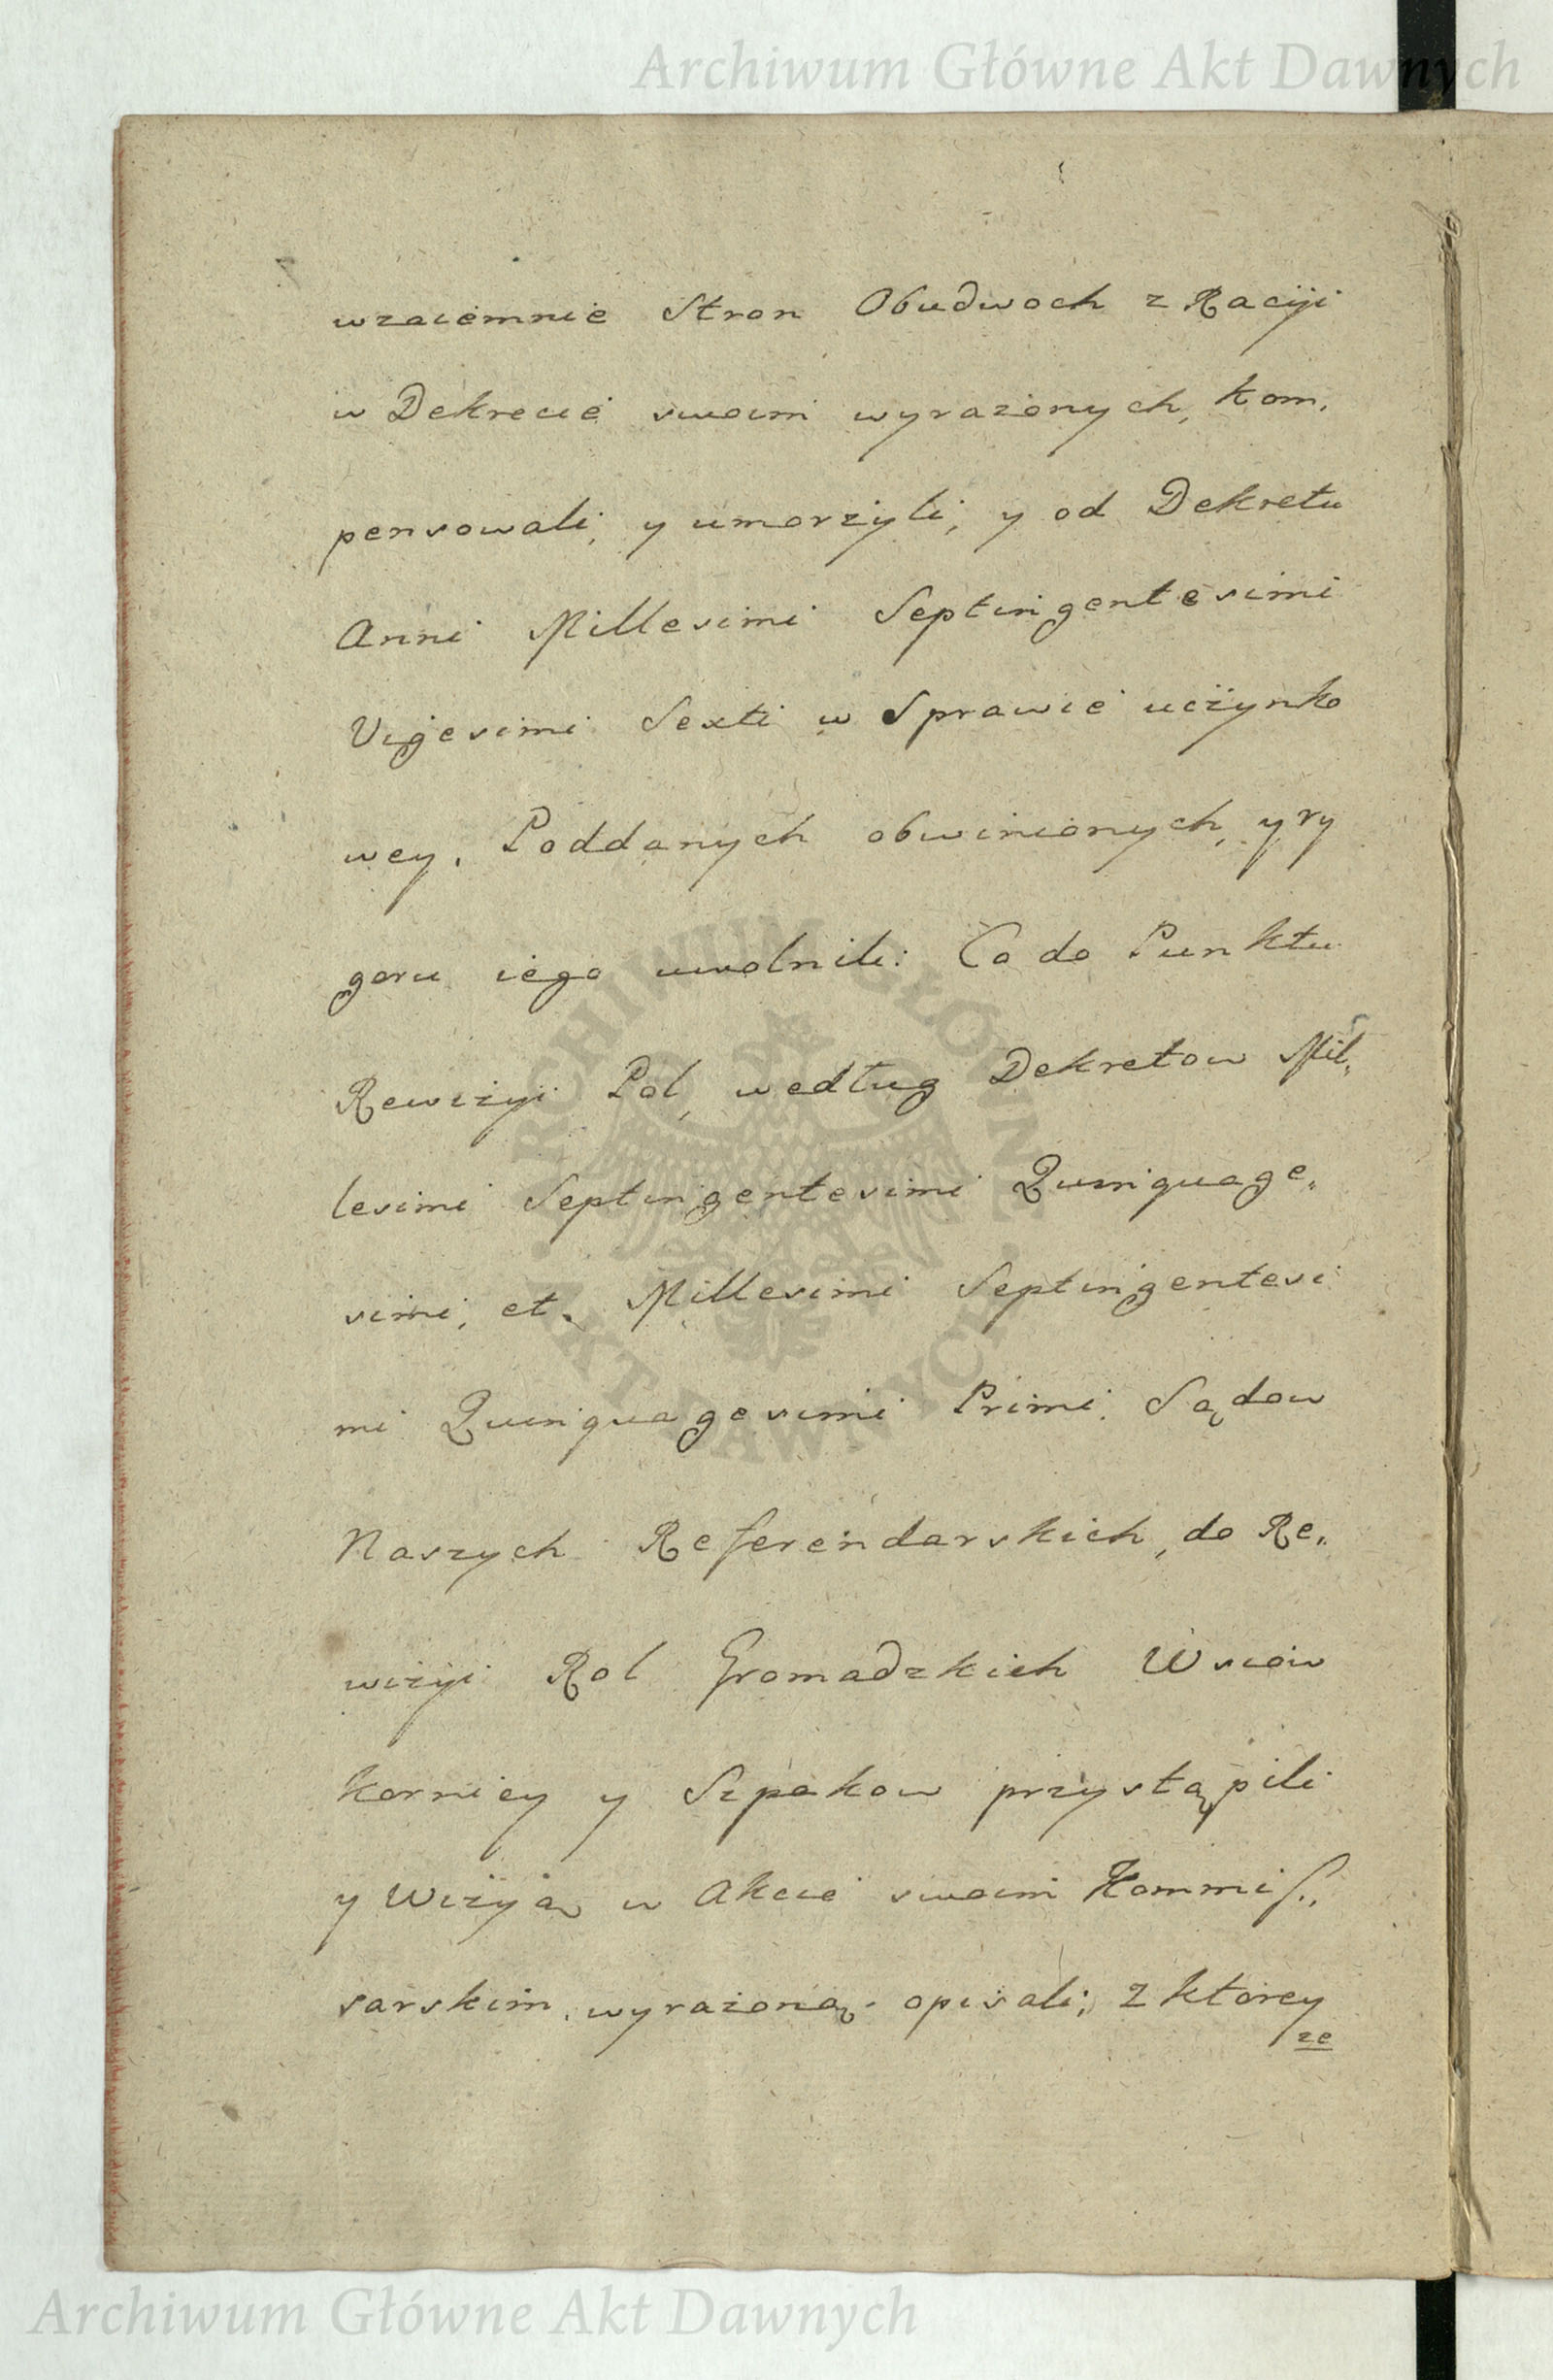 Archiwum Główne Akt Dawnych
wzaiemnie Stron Obudwoch z Racÿi
w Dekrecie swoim wyrażonych, kom,
pensowali, y umorzyli, y od Dekretu
Anni Millesimi Septingentesimi
Vigesimi Sexti w Sprawie uczynko
wey. Poddanych obwinionych, y ry
goru iego uwolnili: Co do Punktu
Rewizyi Pol, według Dekretow Mil„
lesimi Septingentesimi Quinquage„
simi, et. Millesimi Septingentesi
mi Quinquagesimi Primi. Sądow
Naszych Referendarskich, do Re„
wizyi Rol Gromadzkich Wsiow
Kornicy y Szpakow przystąpili
y Wizyią w Akcie swoim Kommis„
sarskim, wyrażoną opisali; z ktorey
ze
ARCHIWUM GŁÓWNE
AKT DAWNYCH
Archiwum Główne Akt Dawnych